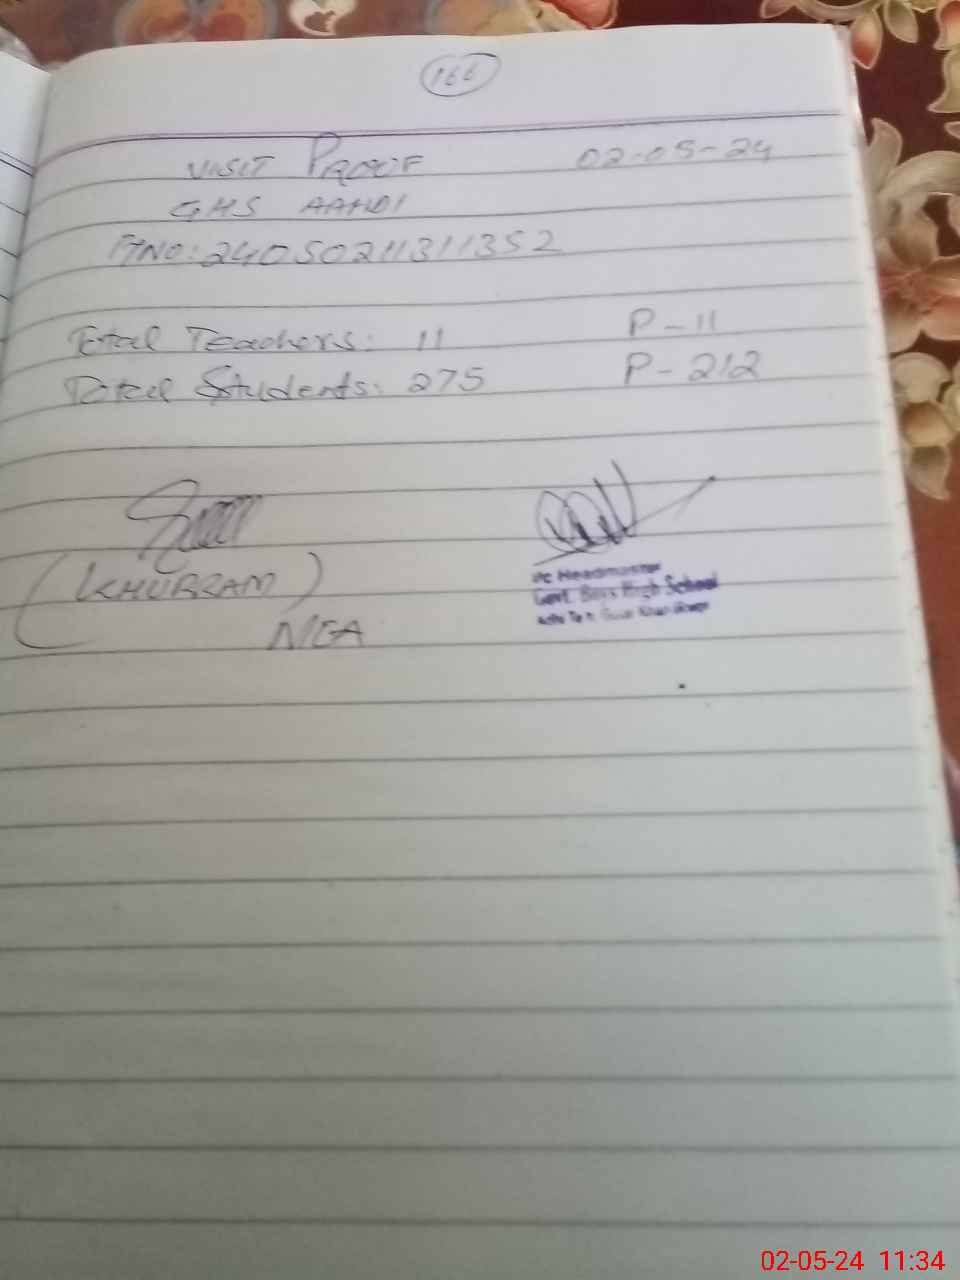 166
VISIT PROOF 02-05-24
GHS AAHDI
24050211311352
Total Teachers: 11 P-11
Total Students: 275 P-212
(KHURRAM)
I/c Headmaster
Govt. Boys High School
02-05-24 11:34